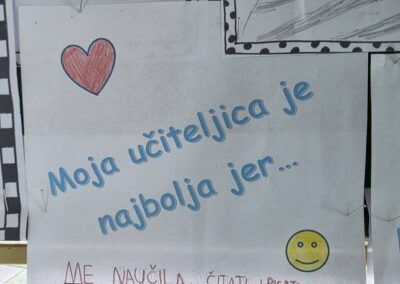 Moja učiteljica je
najbolja jer...
ME NAUČILA ČITATI I PISATI